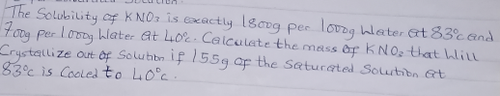 The Solubility of KNO3 is exactly 1800g per 1000g Water at 83°c and
700g per 1000g Water at 40°c. Calculate the mass of KNO3 that Will
Crystallize out of Solution if 155g of the Saturated Solution at
83°c is Cooled to 40°c.